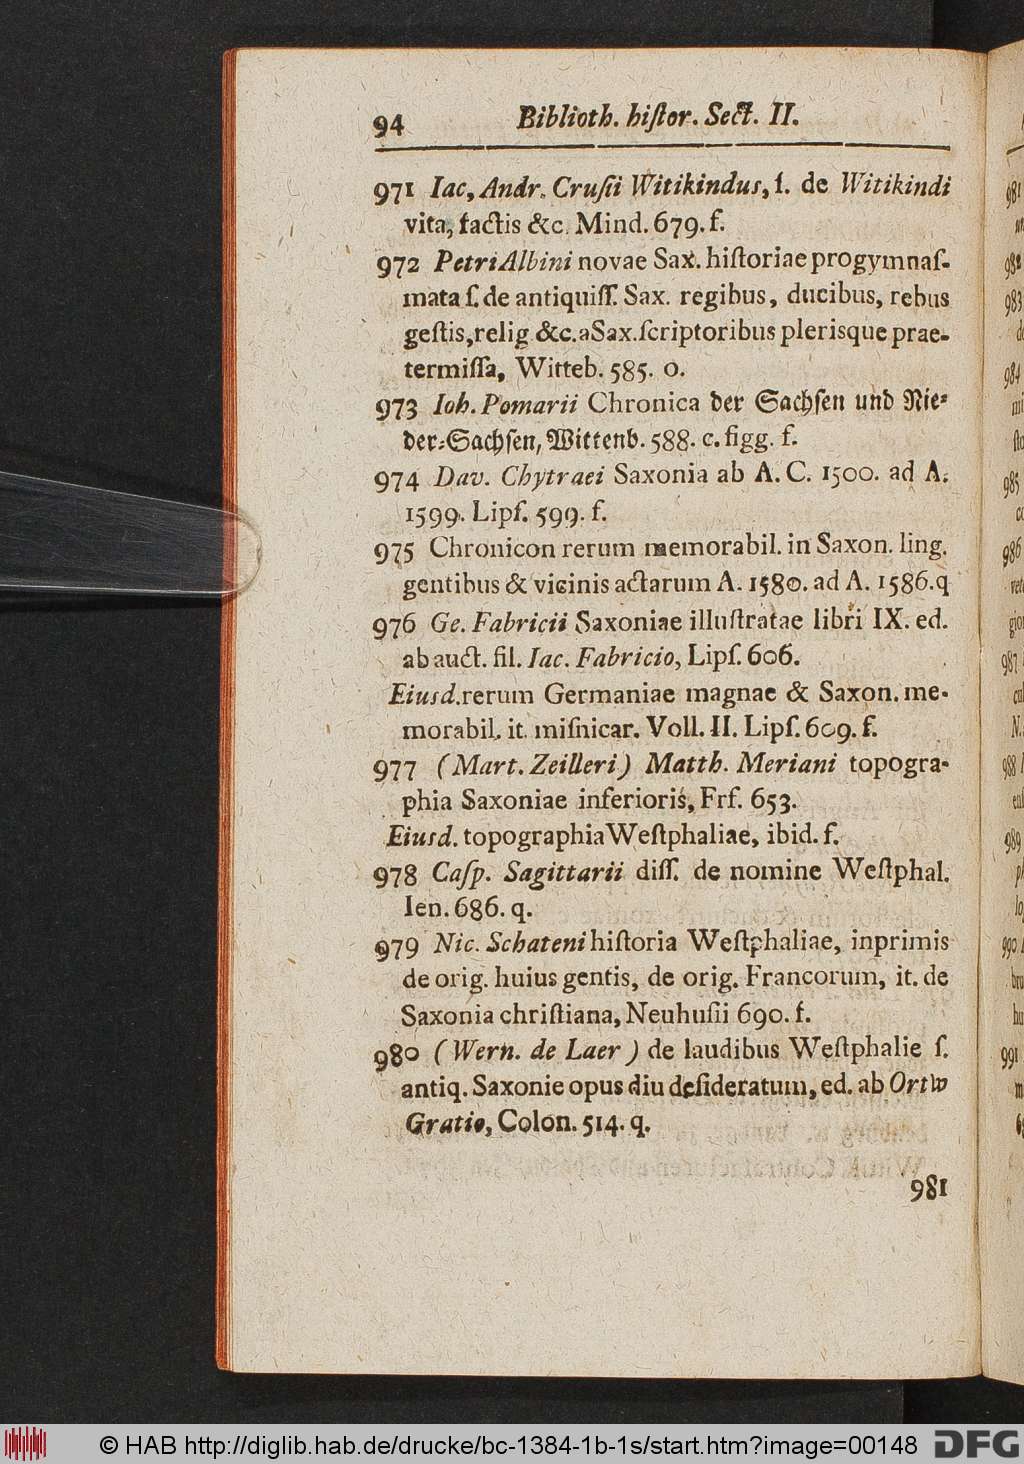 94 Biblioth. hiſtor. Sect. II.
971 Iac, Andr. Cruſii Witikindus, ſ. de Witikindi
vita, factis &c. Mind. 679. f.
972 Petri Albini novae Sax. hiſtoriae progymnaſ-
mata ſ. de antiquiſſ. Sax. regibus, ducibus, rebus
geſtis, relig &c. a Sax. ſcriptoribus plerisque prae-
termiſſa, Witteb. 585. o.
973 Ioh. Pomarii Chronica der Sachſen und Nie-
der-Sachſen, Wittenb. 588. c. figg. f.
974 Dav. Chytraei Saxonia ab A. C. 1500. ad A.
1599. Lipſ. 599. f.
975 Chronicon rerum memorabil. in Saxon. ling.
gentibus & vicinis actarum A. 1580. ad A. 1586. q
976 Ge. Fabricii Saxoniae illuſtratae libri IX. ed.
ab auct. fil. Iac. Fabricio, Lipſ. 606.
Eiusd. rerum Germaniae magnae & Saxon. me-
morabil. it. miſnicar. Voll. II. Lipſ. 609. f.
977 (Mart. Zeilleri) Matth. Meriani topogra-
phia Saxoniae inferioris, Frf. 653.
Eiusd. topographia Weſtphaliae, ibid. f.
978 Caſp. Sagittarii diſſ. de nomine Weſtphal.
Ien. 686. q.
979 Nic. Schateni hiſtoria Weſtphaliae, inprimis
de orig. huius gentis, de orig. Francorum, it. de
Saxonia chriſtiana, Neuhuſii 690. f.
980 (Wern. de Laer) de laudibus Weſtphalie ſ.
antiq. Saxonie opus diu deſideratum, ed. ab Ortw
Gratio, Colon. 514. q.
981
© HAB http://diglib.hab.de/drucke/bc-1384-1b-1s/start.htm?image=00148 DFG